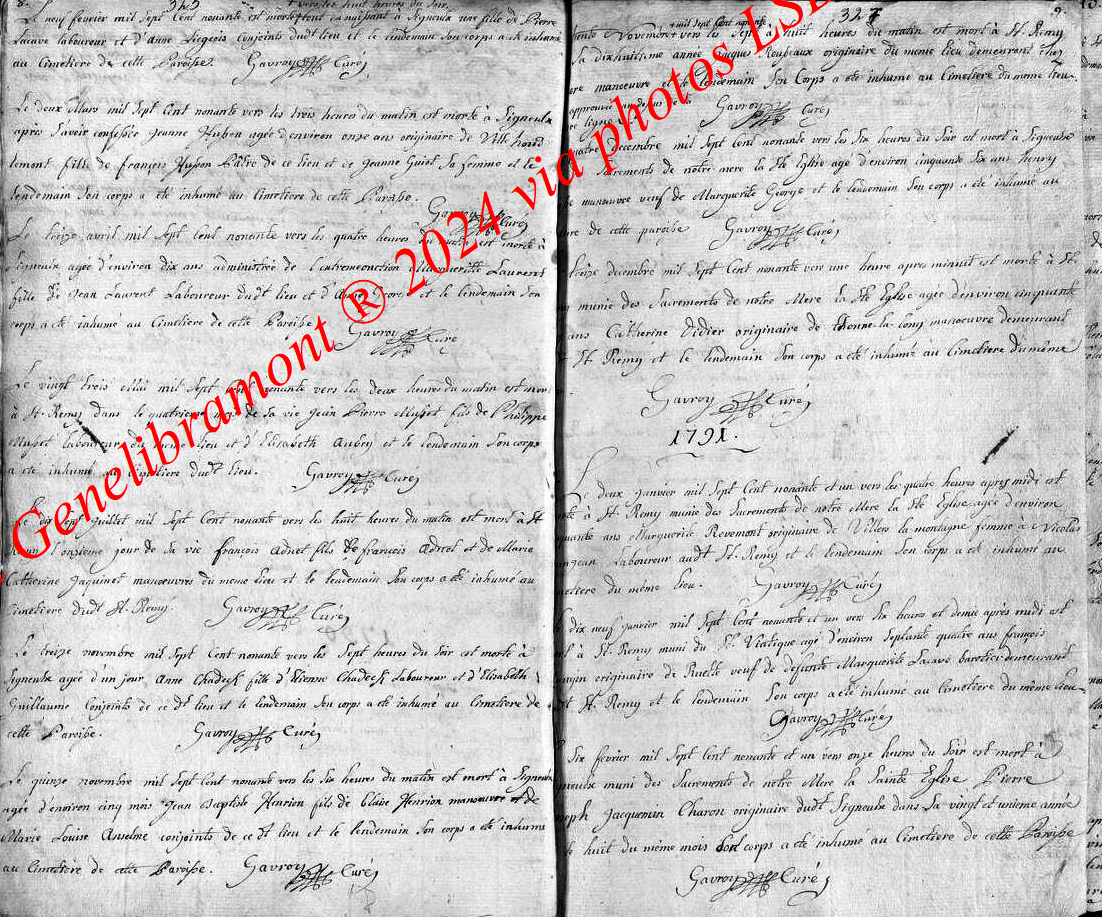 8.
325
vers les huit heures du Soir,
Le neuf fevrier mil Sept Cent nonante est morte en naissant à Signeulx une fille de Pierre
Lacave laboureur et d'Anne Liegeois Conjoints dudt lieu et le lendemain Son corps a été inhumé
au Cimetiere de cette Paroisse. Gavroy Curé
Le deux Mars mil Sept Cent nonante vers les trois heures du matin est morte à Signeulx
après S'avoir confessée Jeanne Husson agée d'environ onze ans originaire de Ville houd
lemont fille de françois Husson Pâtre de ce lieu et de Jeanne Guiot Sa femme et le
lendemain Son corps a été inhumé au Cimetiere de cette Paroisse.
Gavroy Curé
Le treize avril mil Sept Cent nonante vers les quatre heures du matin est morte à
Signeulx agée d'environ dix ans administrée de l'extremeonction Marguerite Laurent
fille de Jean Laurent Laboureur dudt lieu et d'Anne et le lendemain Son
corps a été inhumé au Cimetiere de cette Paroisse. Gavroy Curé
Le vingt trois Mai mil Sept Cent nonante vers les deux heures du matin est mort
à St. Remy dans le quatrieme mois de Sa vie Jean Pierre Muset fils de Philippe
Muset laboureur du meme lieu et d'Elisabeth Aubry et le lendemain Son corps
a été inhumé au Cimetiere dudt lieu. Gavroy Curé
Le dix Sept Juillet mil Sept Cent nonante vers les huit heures du matin est mort à St
Remy l'onzieme jour de Sa vie françois Adnet fils de françois Adnet et de Marie
Catherine Jaquinet manoeuvres du meme lieu et le lendemain Son corps a été inhumé au
Cimetiere dudt St. Remy. Gavroy Curé
Le treize novembre mil Sept Cent nonante vers les Sept heures du Soir est morte à
Signeulx agée d'un jour Anne Chadeck fille d'Etienne Chadeck Laboureur et d'Elisabeth
Guillaume Conjoints de ce dt lieu et le lendemain Son corps a été inhumé au Cimetiere de
cette Paroisse. Gavroy Curé
Le quinze novembre mil Sept Cent nonante vers les Six heures du matin est mort à Signeulx
agée d'environ cinq mois Jean Baptiste Henrion fils de Claise Henrion manoeuvre et de
Marie Louise Anselme conjoints de ce dt lieu et le lendemain Son corps a été inhumé
au Cimetiere de cette Paroisse. Gavroy Curé
327
9.
mil Sept Cent nonante
Novembre vers les Sept à huit heures du matin est mort à St Remy
Sa dixhuitieme année Jacques Roubeaux originaire du meme lieu demeurant chez
manoeuvre et le lendemain Son Corps a été inhumé au Cimetiere du meme lieu.
Gavroy Curé
decembre mil Sept Cent nonante vers les Six heures du Soir est mort à Signeulx
Sacrements de notre mere la Ste Eglise agé d'environ cinquante Six ans henry
manoeuvre veuf de Marguerite George et le lendemain Son corps a été inhumé au
de cette paroisse Gavroy Curé
decembre mil Sept Cent nonante vers une heure apres minuit est morte à St.
munie des Sacrements de notre Mere la Ste Eglise agée d'environ cinquante
ans Catherine Didier originaire de thonne-la-long manoeuvre demeurant
St. Remy et le lendemain Son corps a été inhumé au Cimetiere du même
Gavroy Curé
1791.
Le deux janvier mil Sept Cent nonante et un vers les quatre heures apres midi est
à St. Remy munie des Sacrements de notre Mere la Ste Eglise agée d'environ
ans Marguerite Revemont originaire de Villers la montagne femme à Nicolas
Laboureur audt St. Remy et le lendemain Son corps a été inhumé au
du même lieu. Gavroy Curé
dix neuf janvier mil Sept Cent nonante et un vers Six heures et demie après midi est
à St. Remy muni du St. Viatique agé d'environ Septante quatre ans françois
originaire de Ruette veuf de defunte Marguerite Lacave demeurant
St. Remy et le lendemain Son corps a été inhumé au Cimetiere du même lieu.
Gavroy Curé
Six fevrier mil Sept Cent nonante et un vers onze heures du Soir est mort à
muni des Sacrements de notre Mere la Sainte Eglise Pierre
Jacquemin Charon originaire dudt Signeulx dans Sa vingt et unieme année
le huit du même mois Son corps a été inhumé au Cimetiere de cette Paroisse
Gavroy Curé
Genelibramont ® 2024 via photos LSE